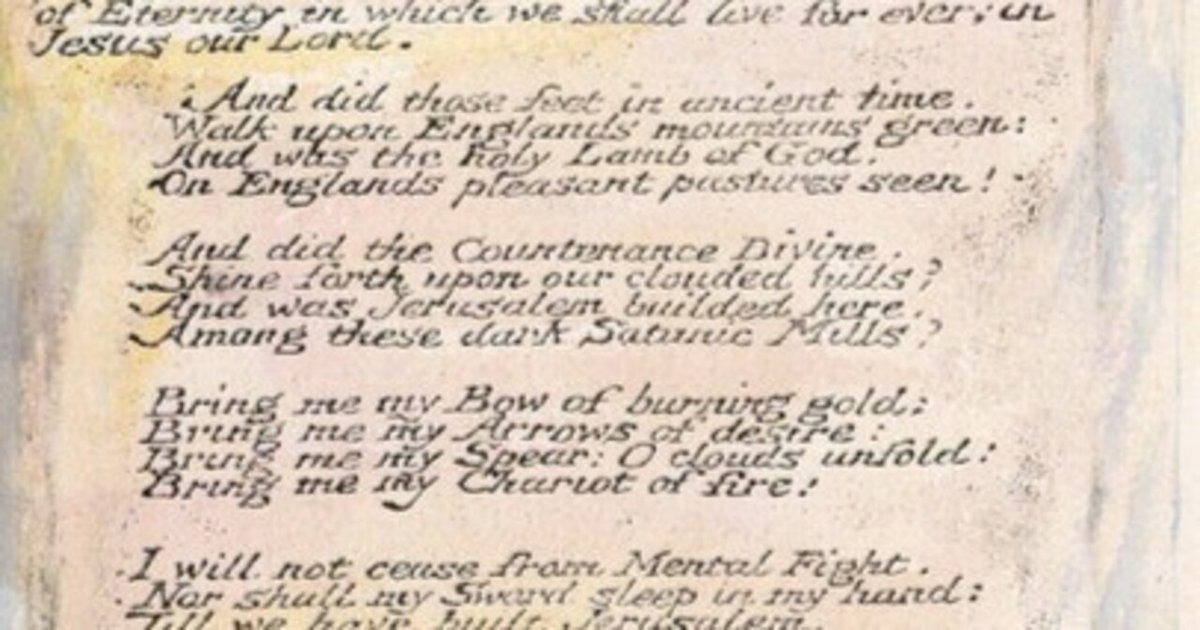 of Eternity in which we shall live for ever; in
Jesus our Lord.
And did those feet in ancient time.
Walk upon Englands mountains green:
And was the holy Lamb of God.
On Englands pleasant pastures seen!
And did the Countenance Divine.
Shine forth upon our clouded hills?
And was Jerusalem builded here.
Among these dark Satanic Mills?
Bring me my Bow of burning gold:
Bring me my Arrows of desire:
Bring me my Spear: O clouds unfold:
Bring me my Chariot of fire!
I will not cease from Mental Fight.
Nor shall my Sword sleep in my hand:
Till we have built Jerusalem.